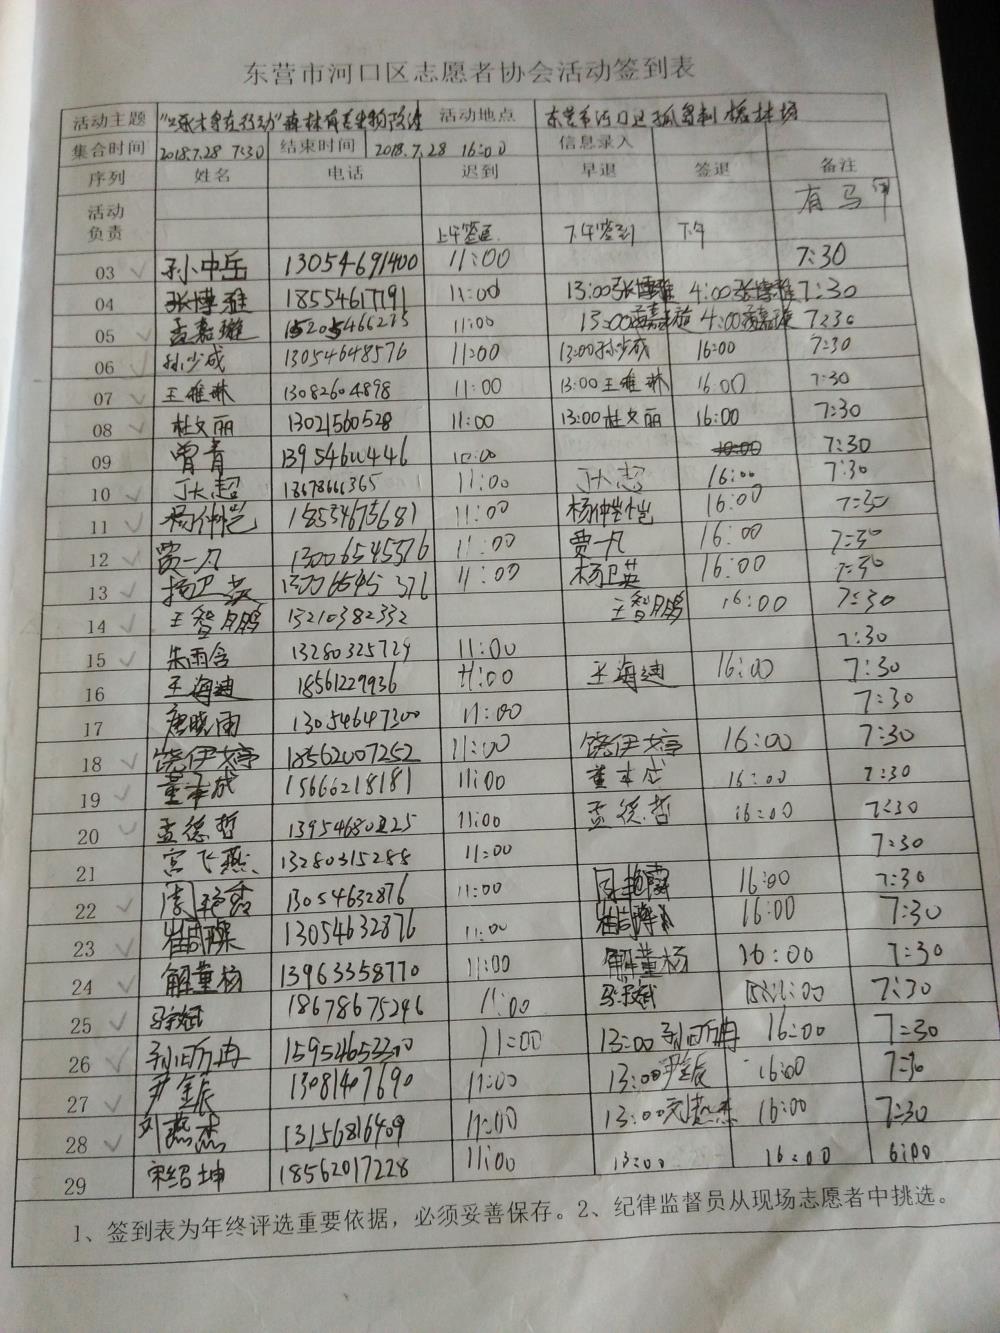 东营市河口区志愿者协会活动签到表
活动主题 "啄木鸟在行动"森林有害生物防治 活动地点 东营市河口区孤岛刺槐林场
集合时间 2018.7.28 7:30 结束时间 2018.7.28 16:00 信息录入
序列 姓名 电话 迟到 早退 签退 备注
活动负责 上午签退 下午签到 下午 有马甲
03 孙中岳 13054691400 11:00 7:30
04 张博雅 18554617191 11:00 13:00张博雅 4:00张博雅 7:30
05 孟嘉璇 15205466275 11:00 13:00孟嘉璇 4:00孟嘉璇 7:30
06 孙少成 13054648576 11:00 13:00孙少成 16:00 7:30
07 王维琳 13082604898 11:00 13:00王维琳 16:00 7:30
08 杜文丽 13021560528 11:00 13:00杜文丽 16:00 7:30
09 曾青 13954600446 10:00 10:00 7:30
10 张超 18678666365 11:00 张超 16:00 7:30
11 杨仲恺 18554673681 11:00 杨仲恺 16:00 7:30
12 贾一凡 13006545376 11:00 贾一凡 16:00 7:30
13 杨卫英 13006545376 11:00 杨卫英 16:00 7:30
14 王智鹏 13210382332 王智鹏 16:00 7:30
15 朱雨含 13280325729 11:00 7:30
16 王海迪 18561229936 11:00 王海迪 16:00 7:30
17 唐晓雨 13054647300 11:00 7:30
18 饶伊婷 18562007252 11:00 饶伊婷 16:00 7:30
19 董本成 15666218181 11:00 董本成 16:00 7:30
20 孟德哲 13954680225 11:00 孟德哲 16:00 7:30
21 宫飞燕 13280315288 11:00 7:30
22 13054632876 11:00 16:00 7:30
23 13054632876 11:00 16:00 7:30
24 解董杨 13963358770 11:00 解董杨 16:00 7:30
25 18678675246 11:00 16:00 7:30
26 15954653300 11:00 13:00 16:00 7:30
27 尹金辰 13081407690 11:00 13:00尹金辰 16:00 7:30
28 刘燕杰 13156816409 11:00 13:00 16:00 7:30
29 宋绍坤 18562017228 11:00 13:00 16:00 6:00
1、签到表为年终评选重要依据，必须妥善保存。2、纪律监督员从现场志愿者中挑选。